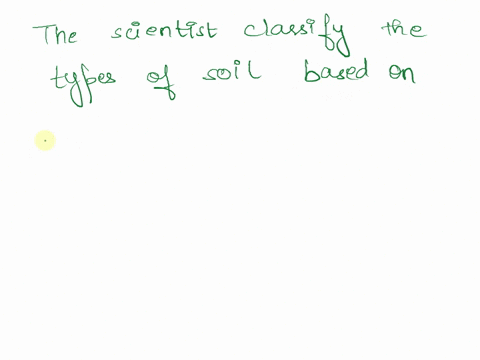 The scientist classify the
types of soil based on